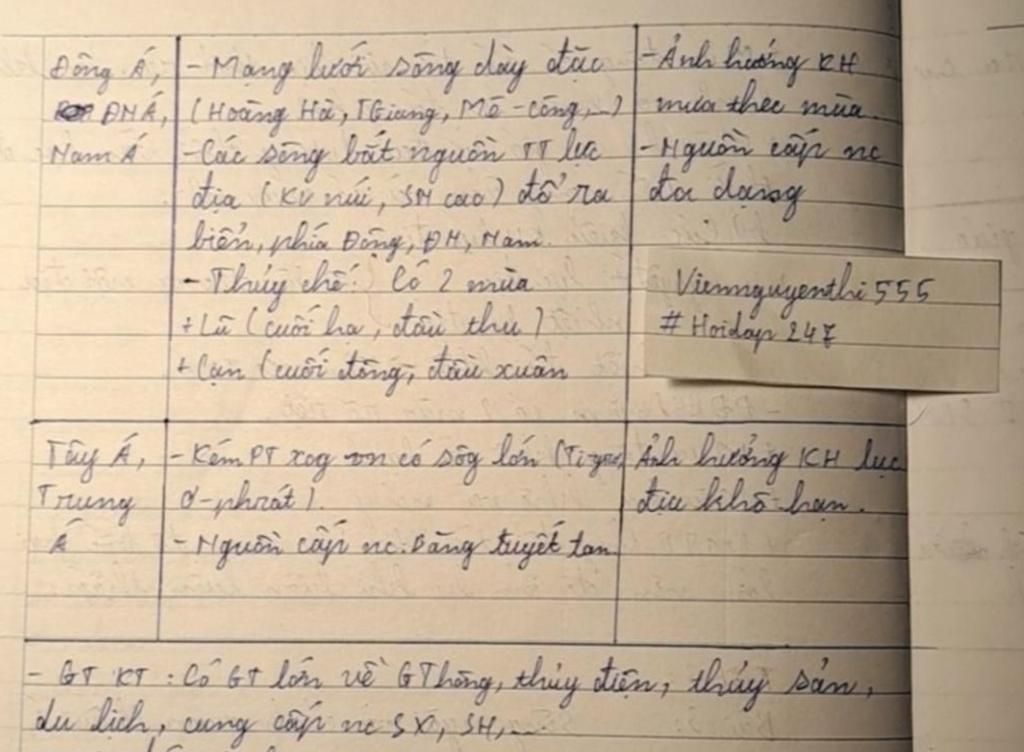 Đông Á,
ĐNÁ,
Nam Á
- Mạng lưới sông dày đặc
(Hoàng Hà, TGiang, Mê-công,...)
- Các sông bắt nguồn TT lục
địa (KV núi, SN cao) đổ ra
biển, phía Đông, ĐN, Nam.
- Thủy chế: Có 2 mùa
+ Lũ (cuối hạ, đầu thu)
+ Cạn (cuối đông, đầu xuân
- Ảnh hưởng KH
mưa theo mùa.
- Nguồn cấp nc
đa dạng
Viennguyenthi555
#Hoidap247
Tây Á,
Trung
Á
- Kém PT xog vn có sôg lớn (Ti-grơ,
Ơ-phrát).
- Nguồn cấp nc: Băng tuyết tan
Ảnh hưởng KH lục
địa khô hạn.
- GT KT: Có GT lớn về GThông, thủy điện, thủy sản,
du lịch, cung cấp nc SX, SH,...